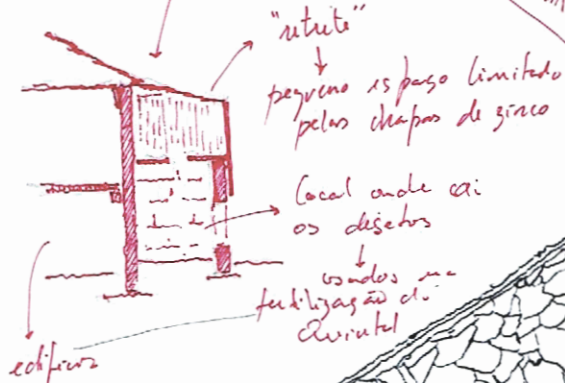 "retrete"
pequeno espaço limitado
pelas chapas de zinco
local onde cai
os dejetos
usados na
fertilização do
Quintal
edifício